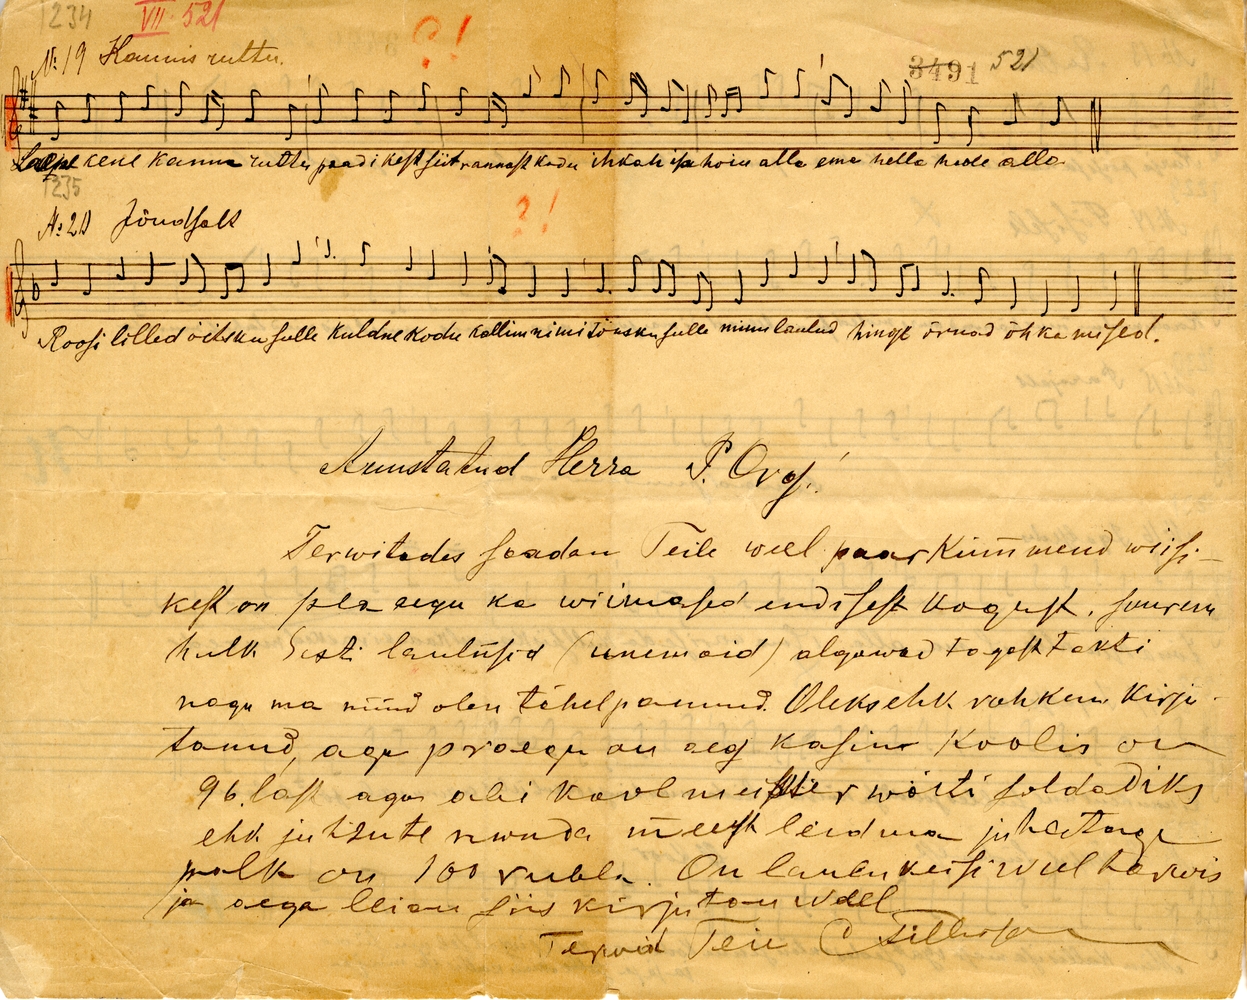 1234
VII 521
?!
№ 19 Kaunis ruttu.
3491 521
kene kannu ruttu paadikest siit rannast kodu ihkab isa hoiu alla ema hella hoole alla
1235
№ 20 Jõudsalt
?!
Roosi lilled õitsku sulle kuldne kodu kallim nimi tõusku sulle minu laulud hinge õrnad õhkamised.
Armstatud Herra P. Org!
Terwitades saadan Teile weel paarkümmend wiisi-
kest on pea aegu ka wiimased endisest kogust, suurem
hulk Eesti laulusid (unemaid) algawad tagast takti
nagu ma nüüd olen tähelpannud. Oleks ehk rohkem kirju-
tanud, aga praegu on aeg kasin Koolis on
96 last aga abi koolmeister wõeti soldatiks
ehk juhtute muuda meest leidma
palk on 100 rubla. On laulu keisi weel tarwis
ja aega leian siis kirjutan weel
Terwid Teie